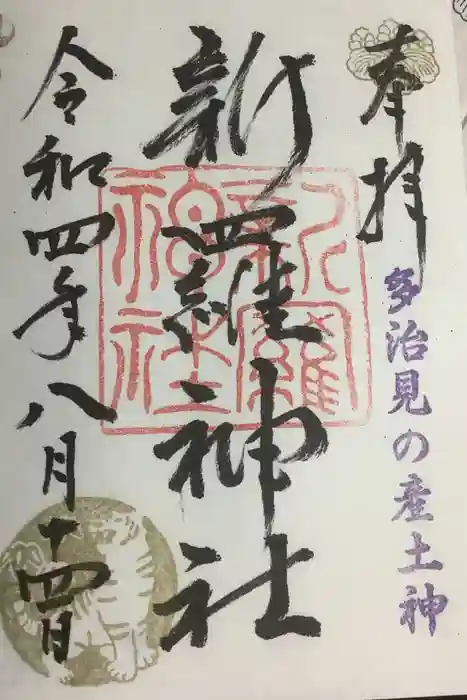 奉拝
多治見の産土神
新羅神社
新羅
神社
令和四年八月十四日